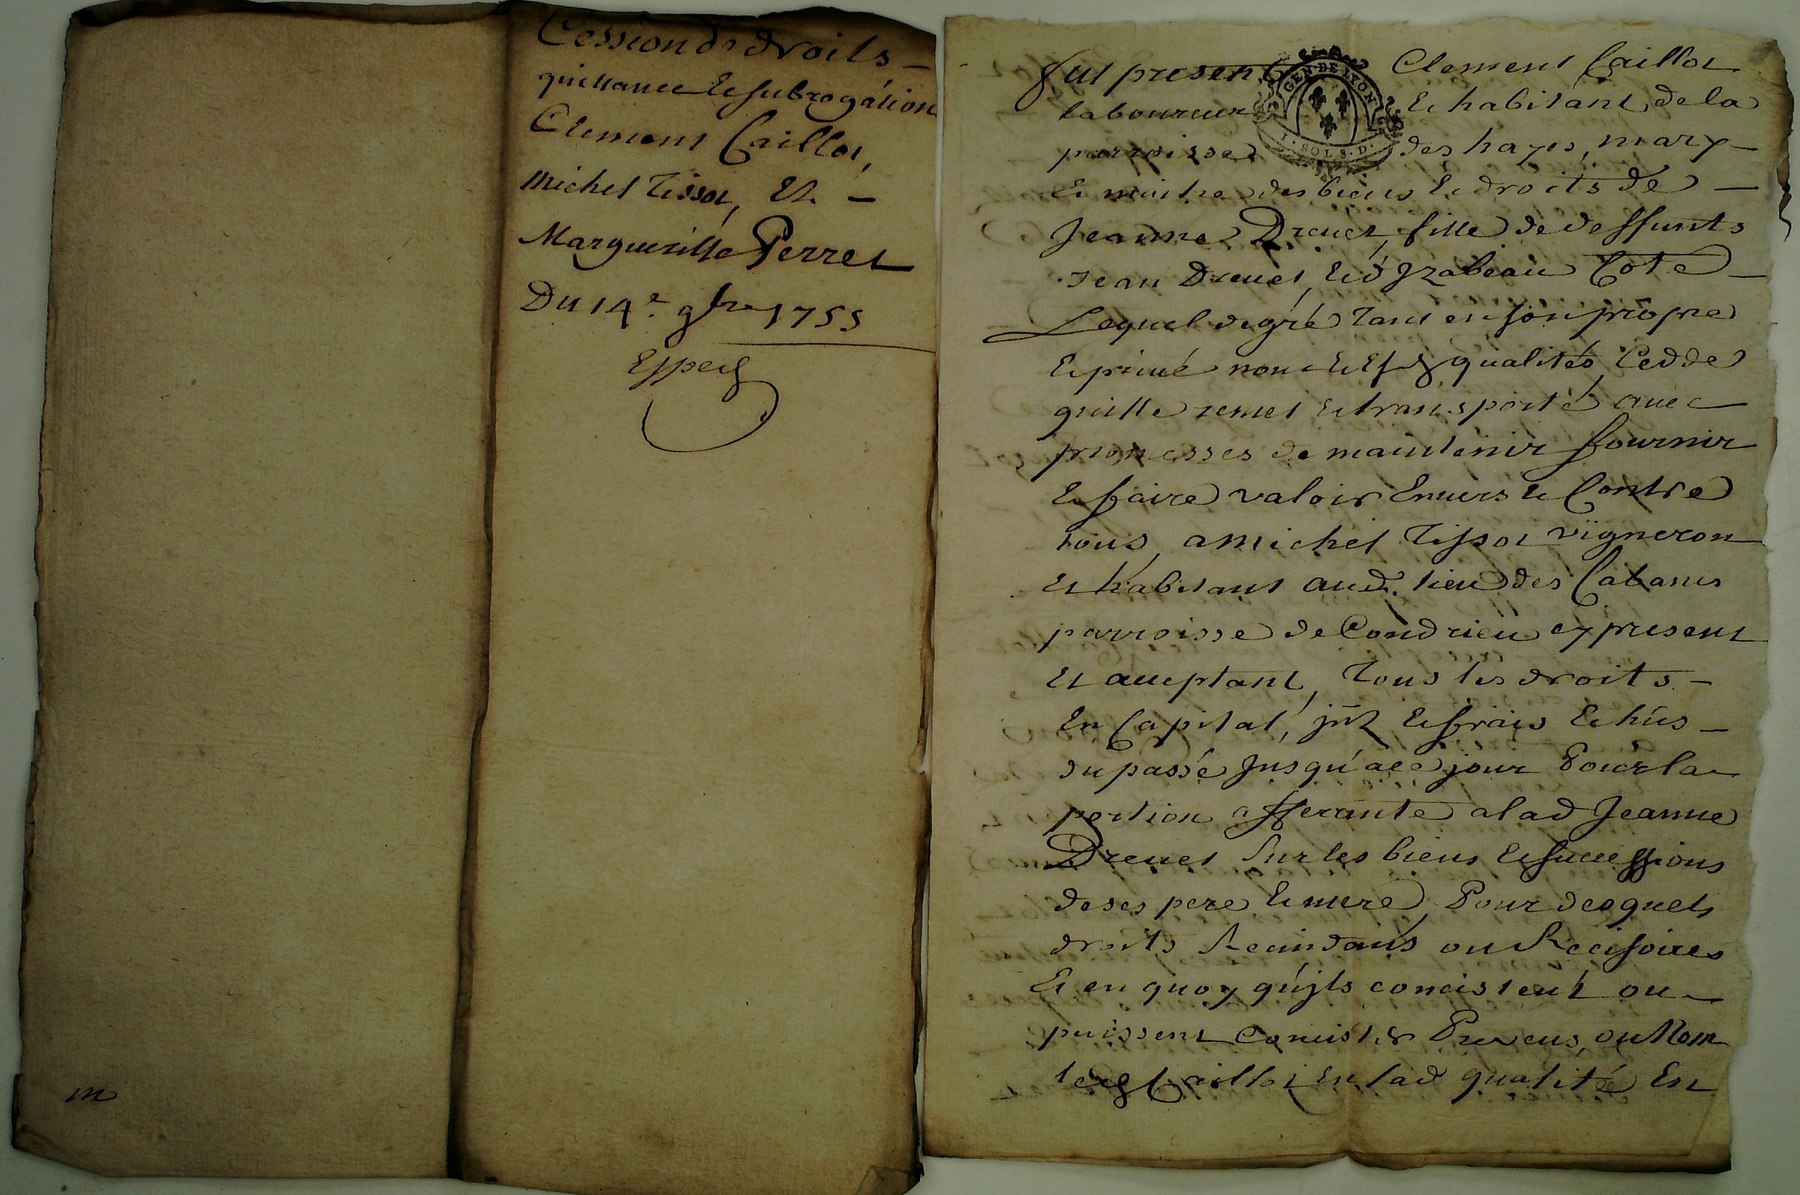 Cession de droits
quittance & subrogation
Clement Caillot,
Michel Tissot, Et
Margueritte Perret
Du 14e 9bre 1755
Exped
m
GEN. DE LYON
SOLS. D.
fut present Clement Caillot
laboureur & habitant de la
parroisse des hayes, mary
& maitre des biens & droits de
Jeanne Drevet, fille de deffunts
Jean Drevet, & d'Izabeau Cote
Lequel de gré tant en son propre
& privé nom & esd qualités, Cedde
quitte remet & transporte avec
promesses de maintenir fournir
& faire valoir Envers & Contre
tous, a Michel Tissot vigneron
Et habitant aud. lieu des Cabanes
parroisse de Condrieu cy present
Et acceptant, Tous les droits
En Capital, jnt & frais Echus
du passé Jusqu'a ce jour Pour la
portion afferante a lad Jeanne
Drevet Sur les biens & successions
de ses pere & mere, Pour desquels
droits Recindants ou Recisoires
Et en quoy qu'jls concistent ou
puissent concister Prevus, ou Non
led Caillot En lad qualité En